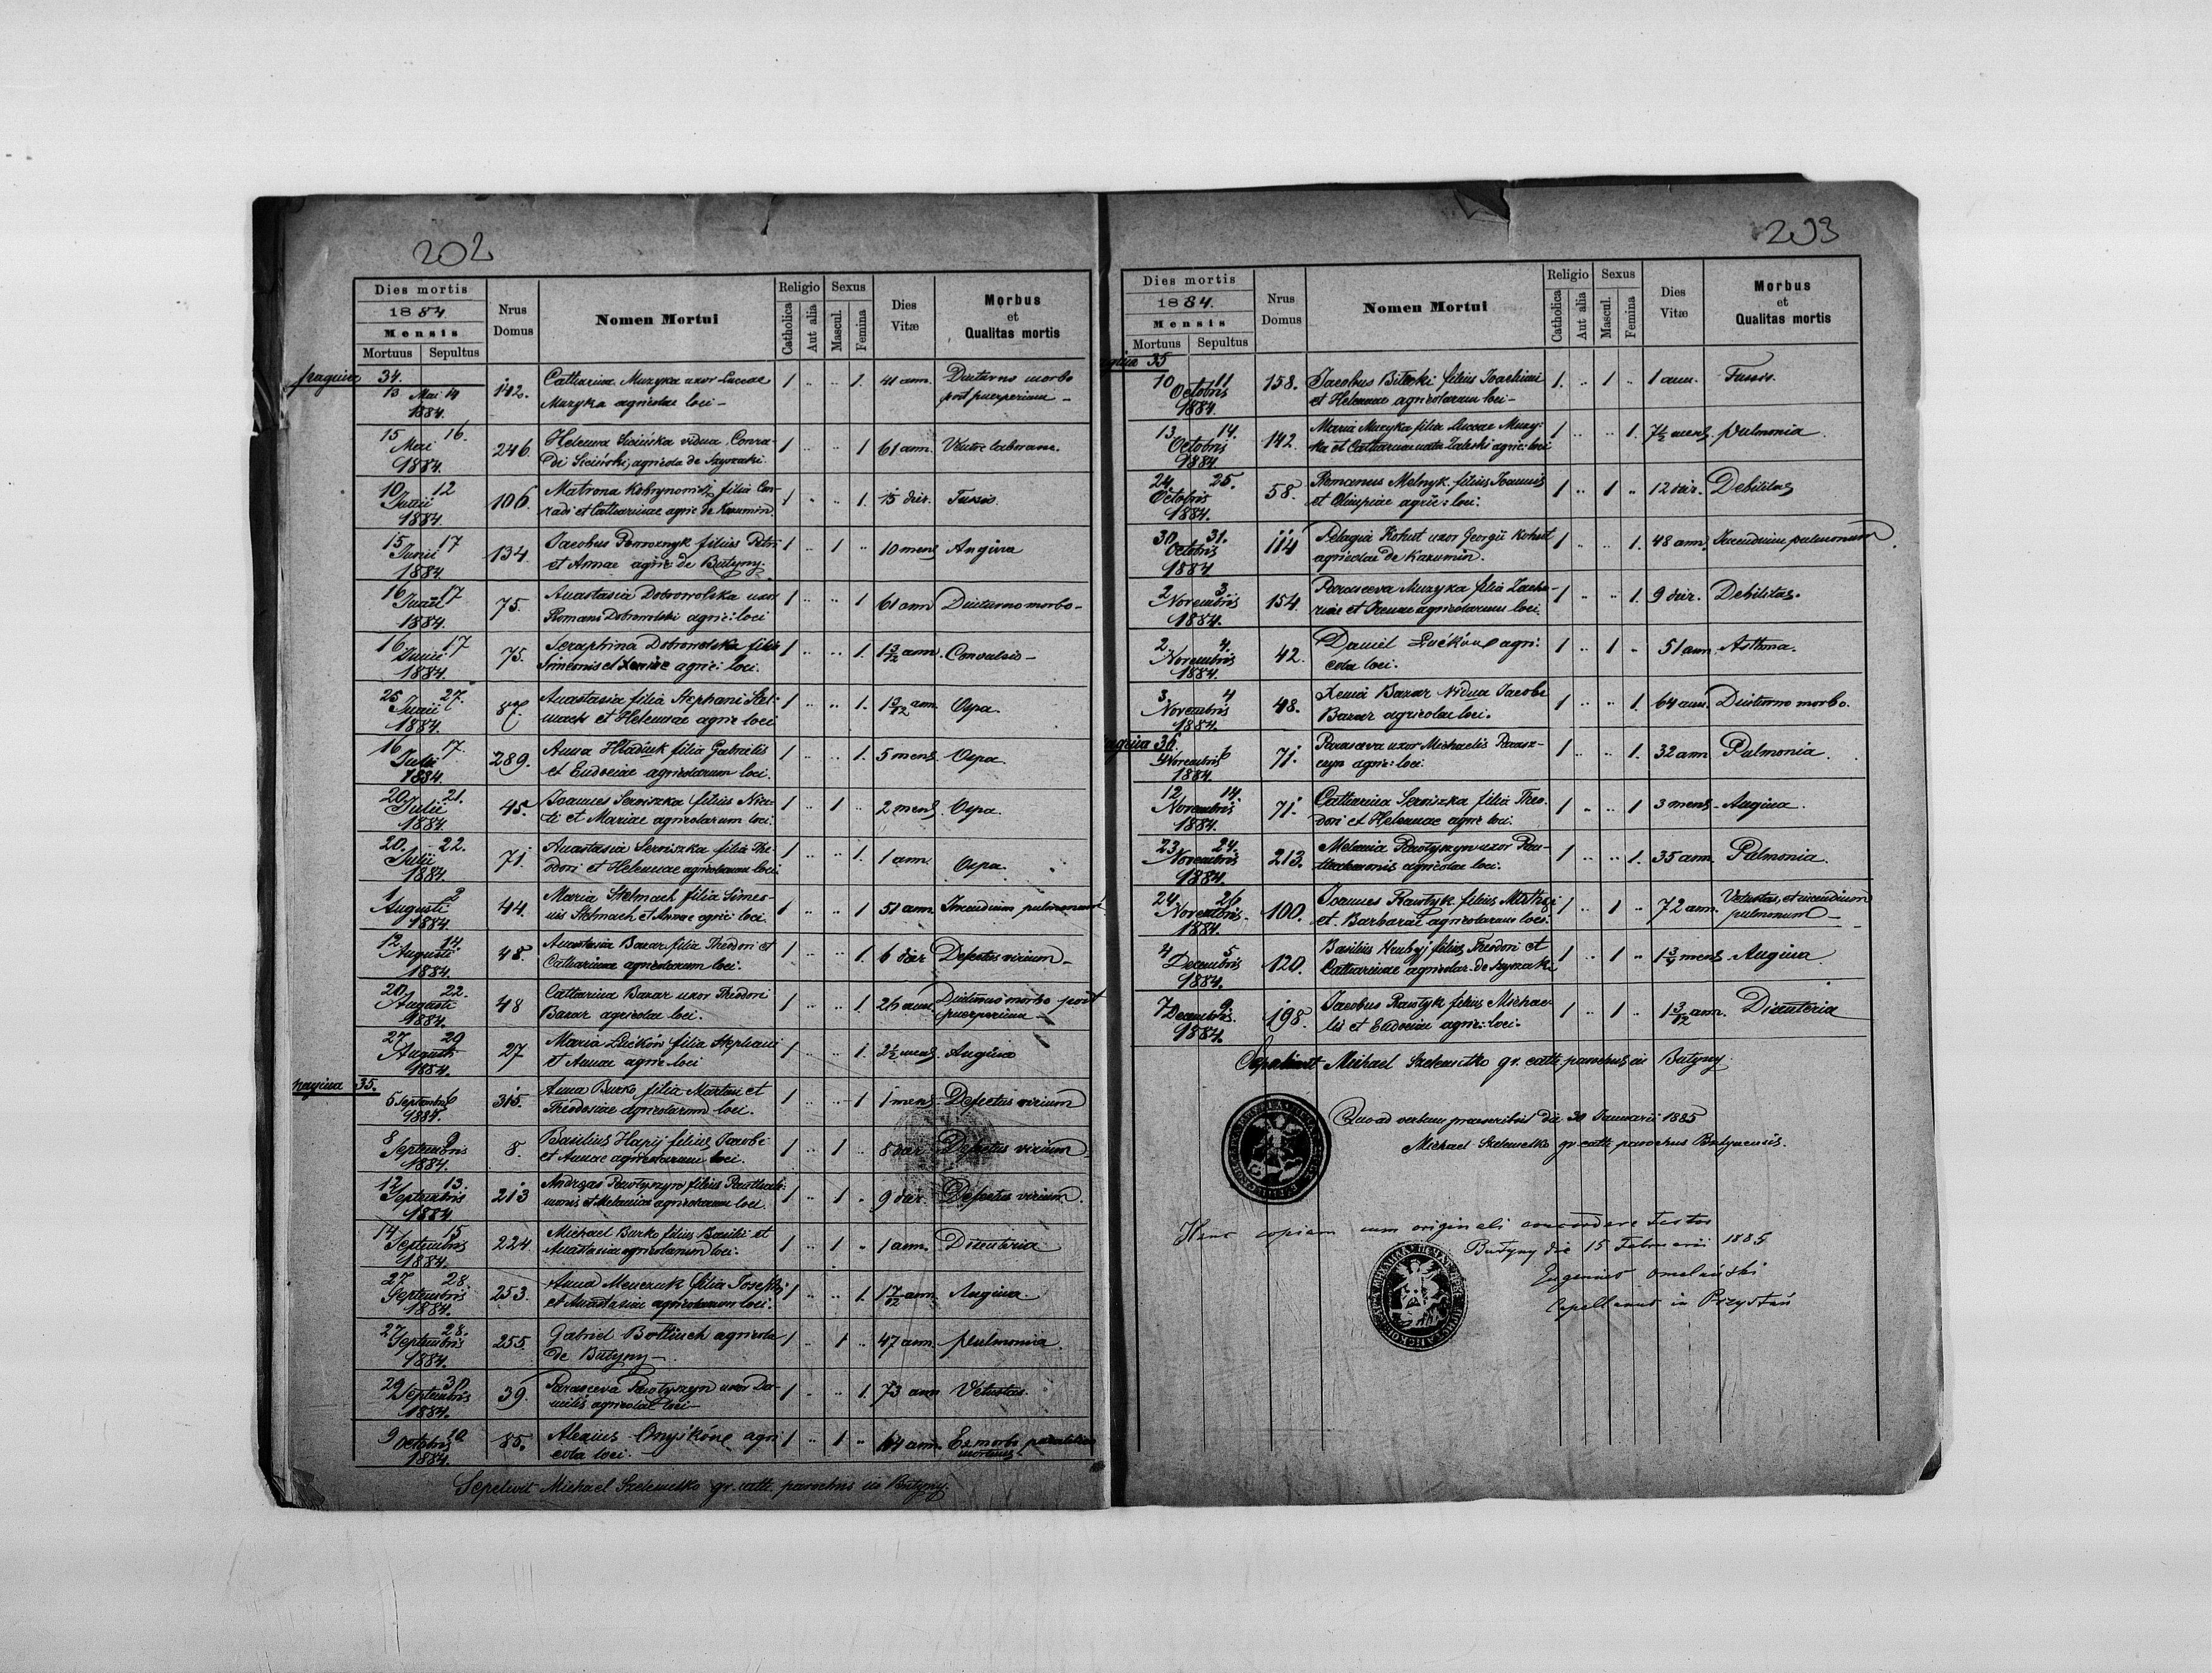 202
Dies mortis
1884.
Mensis
Mortuus Sepultus
Nrus
Domus
Nomen Mortui
Religio
Catholica
Aut alia
Sexus
Mascul.
Femina
Dies
Vitæ
Morbus
et
Qualitas mortis
pagina 34.
13 Mai 14 1884. 142. Catharina Muzyka uxor Lucae 1 .. .. 1. 41 ann. Diuturno morbo
Muzyka agricolae loci - post puerperium -
15 Mai 16. 1884. 246. Helenna Sicińska vidua Conra- 1 .. .. 1 61 ann.
di Siciński, agricola de Szyszaki.
10 Junii 12 1884. 106. Matrona Kobrynowicz filia Con- 1 .. .. 1. 15 dier. Tussis
radi et Catharinae agric de Kazumin.
15 Junii 17 1884. 134 Jacobus filius Petri 1 .. 1 .. 10 mens Angina
et Annae agric: de Butyny.
16 Junii 17 1884. 75. Anastasia Dobrowolska uxor 1 .. .. 1 61 ann Diuturno morbo -
Romani Dobrowolski agric: loci
16 Junii 17 1884. 75. Seraphina Dobrowolska filia 1 .. .. 1. 1 3/12 ann. Convulsio -
Simeonis et Xeniae agric: loci.
25 Junii 27. 1884. 87. Anastasia filia Stephani Stel- 1 .. .. 1. 1 3/12 ann Ospa.
mach et Helennae agric loci
16 Julii 17. 1884 289. Anna Hladiuk filia Gabrielis 1 .. .. 1. 5 mens Ospa
et Eudociae agricolarum loci.
20 Julii 21. 1884. 45. Joannes Serwiszka filius Nice- 1 .. 1 .. 2 mens. Ospa.
ti et Mariae agricolarum loci.
20. Julii 22. 1884. 71. Anastasia Serwiszka filia The- 1 .. .. 1. 1 ann. Ospa.
odori et Helennae agricolarum loci.
1 Augusti 2 1884. 44. Maria Stelmach filia Simeo- 1 .. .. 1 51 ann. Incendium pulmonum
nis Stelmach et Annae agric: loci.
12. Augusti 14. 1884. 48. Anastasia Bazar filia Theodori et 1 .. .. 1. 6 dier Defectus virium -
Catharinae agricolarum loci.
20. Augusti 22. 1884. 48 Catharina Bazar uxor Theodori 1 .. .. 1 26 ann. Diuturno morbo post
Bazar agricolae loci. puerperium -
27 Augusti 29 1884. 27 Maria Łućków filia Stephani 1 .. .. 1. 2 1/2 mens Angina
et Annae agric loci
pagina 35.
5 Septembris 6 1884. 315. Anna Burko filia Martini et 1 .. .. 1 1 mens Defectus virium
Theodosiae agricolarum loci.
8 Septembris 9 1884. 8. Basilius Hapij filius Jacobi 1 .. 1 .. 8 dier Defectus virium
et Annae agricolarum loci.
12 Septembris 13. 1884 213 Andreas Pawłyszyn filius Panthale- 1 .. 1 .. 9 dier Defectus virium.
monis et Melaniae agricolarum loci.
14 Septembris 15 1884. 224. Michael Burko filius Basilii et 1 .. 1 .. 1 ann. Dizenteria
Anastasiae agricolarum loci.
27 Septembris 28. 1884. 253. Anna Menczuk filia Josephi 1 .. .. 1. 1 7/12 ann. Angina.
et Anastasiae agricolarum loci.
27 Septembris 28. 1884. 255. Gabriel agricola 1 .. 1 .. 47 ann. Pulmonia.
de Butyny -
29 Septembris 30. 1884. 39. Parasceva Pawłyszyn uxor Da- 1 .. .. 1. 73 ann Vetustas.
nielis agricolae loci -
9 Octobris 10 1884. 85. Alexius Onyśków agri 1 .. 1 .. 64 ann Ex morbo
cola loci. mortuus
Sepelivit Michael Szelemetko gr. cath. parochus in Butyny.
203
Dies mortis
1884.
Mensis
Mortuus Sepultus
Nrus
Domus
Nomen Mortui
Religio
Catholica
Aut alia
Sexus
Mascul.
Femina
Dies
Vitæ
Morbus
et
Qualitas mortis
pagina 35
10 Octobris 11 1884. 158. Jacobus filius Joachimi 1. .. 1 .. 1 ann. Tussis.
et Helennae agricolarum loci -
13. Octobris 14. 1884. 142. Maria Muzyka filia Lucae Muzy- 1 .. .. 1. 7 1/2 mens. Pulmonia.
ka et Catharinae natae Zaleski agric: loci
24. Octobris 25. 1884. 58. Romanus Melnyk filius Joannis 1 .. 1 .. 12 dier. Debilitas
et Olimpiae agric: loci.
30. Octobris 31. 1884 114 Pelagia Kohut uxor Georgii Kohut 1 .. .. 1. 48 ann. Incendium pulmonum.
agricolae de Kazumin.
2 Novembris 3. 1884. 154. Parasceva Muzyka filia Zacha- 1 .. .. 1. 9 dier. Debilitas.
riae et agricolarum loci.
2. Novembris 4. 1884. 42. Daniel Łućków agri: 1 .. 1 .. 51 ann. Asthma.
cola loci.
3 Novembris 4 1884. 48. Xenia Bazar vidua Jacobi 1 .. .. 1. 64 ann. Diuturno morbo.
Bazar agricolae loci.
pagina 36.
4 Novembris 6 1884. 71. Parasceva uxor Michaelis 1 .. .. 1. 32 ann Pulmonia.
agric: loci.
12 Novembris 14. 1884. 71. Catharina Serwiszka filia Theo- 1 .. .. 1 3 mens - Angina.
dori et Helennae agric loci.
23. Novembris 24. 1884. 213. Melania Pawłyszyn uxor Pan- 1 .. .. 1. 35 ann. Pulmonia.
thalemonis agricolae loci.
24 Novembris 26 1884. 100. Joannes Pawłyk filius Mathaei 1 .. 1 .. 72 ann. Vetustas, et incendium
et Barbarae agricolarum loci. pulmonum -
4 Decembris 5 1884. 120. Basilius Hrubyj filius Theodori et 1 .. 1 .. 1 3/4 mens Angina.
Catharinae agricolar. de Szyszaki
7 Decembris 9. 1884. 198. Jacobus Pawłyk filius Michae- 1 .. 1 .. 1 3/12 ann. Dizenteria
lis et Eudociae agric: loci.
Sepelivit Michael Szelemetko gr. cath. parochus in Butyny.
Quoad verbum praescribit die 30 Januarii 1885
Michael Szelemetko gr. cath. parochus Butynensis.
Hanc copiam cum originali concordare testor
Butyny die 15 Februarii 1885
Eugenius
Capellanus in Przystań